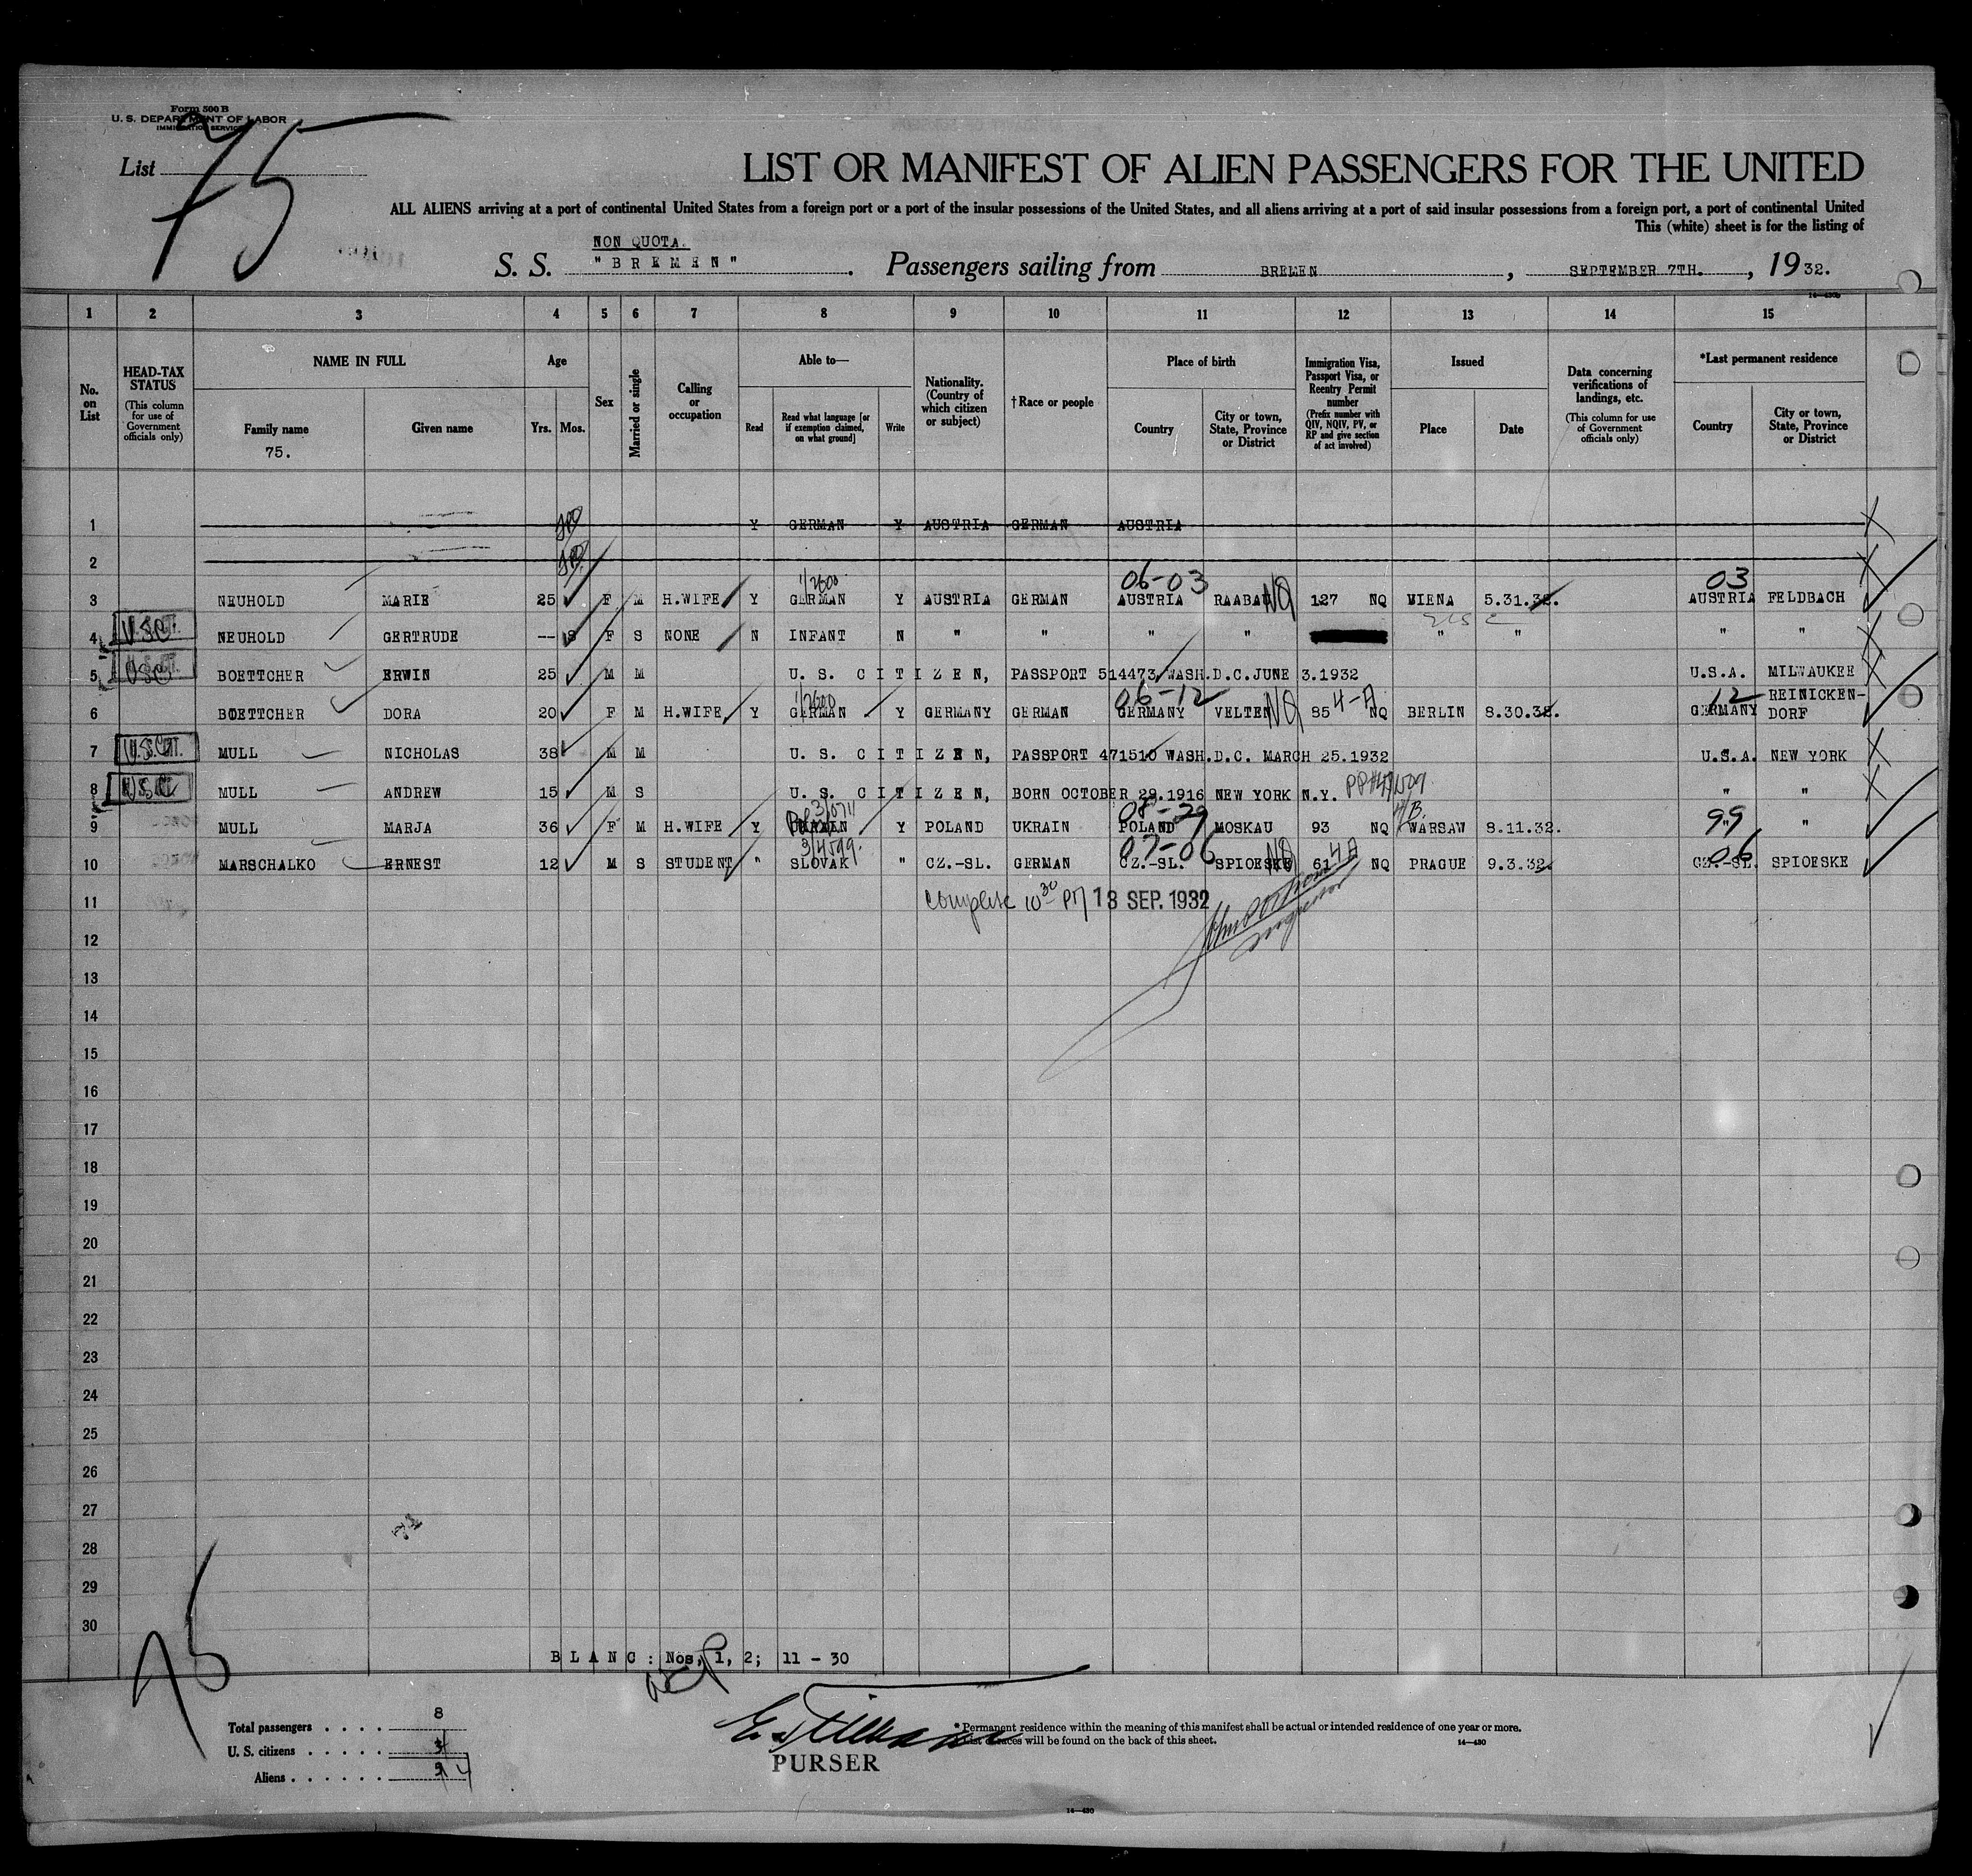 Form 500 B
U. S. DEPARTMENT OF LABOR
IMMIGRATION SERVICE
List 75
LIST OR MANIFEST OF ALIEN PASSENGERS FOR THE UNITED
ALL ALIENS arriving at a port of continental United States from a foreign port or a port of the insular possessions of the United States, and all aliens arriving at a port of said insular possessions from a foreign port, a port of continental United
This (white) sheet is for the listing of
NON QUOTA.
S. S. "BREMEN". Passengers sailing from BREMEN, SEPTEMBER 7TH., 1932.
1 2 3 4 5 6 7 8 9 10 11 12 13 14 15
No. on List
HEAD-TAX STATUS (This column for use of Government officials only)
NAME IN FULL
Family name
75.
Given name
Age
Yrs. Mos.
Sex
Married or single
Calling or occupation
Able to—
Read
Read what language [or if exemption claimed, on what ground]
Write
Nationality. (Country of which citizen or subject)
†Race or people
Place of birth
Country
City or town, State, Province or District
Immigration Visa, Passport Visa, or Reentry Permit number (Prefix number with QIV, NQIV, PV, or RP and give section of act involved)
Issued
Place
Date
Data concerning verifications of landings, etc. (This column for use of Government officials only)
*Last permanent residence
Country
City or town, State, Province or District
1 Y GERMAN Y AUSTRIA GERMAN AUSTRIA
2
06-03 03
3 NEUHOLD MARIE 25 F M H.WIFE Y GERMAN Y AUSTRIA GERMAN AUSTRIA RAABA NQ 127 NQ WIENA 5.31.32. AUSTRIA FELDBACH
4 USC NEUHOLD GERTRUDE -- 8 F S NONE N INFANT N " " " " " " " "
5 USC BOETTCHER ERWIN 25 M M U. S. CITIZEN, PASSPORT 514473 WASH.D.C.JUNE 3.1932 U.S.A. MILWAUKEE
06-12 4-A 12
6 BOETTCHER DORA 20 F M H.WIFE Y GERMAN Y GERMANY GERMAN GERMANY VELTEN NQ 85 NQ BERLIN 8.30.32. GERMANY REINICKEN-DORF
7 U.S.CIT. MULL NICHOLAS 38 M M U. S. CITIZEN, PASSPORT 471510 WASH.D.C. MARCH 25.1932 U.S.A. NEW YORK
8 USC MULL ANDREW 15 M S U. S. CITIZEN, BORN OCTOBER 29.1916 NEW YORK N.Y. " "
08-29 99
9 MULL MARJA 36 F M H.WIFE Y Y POLAND UKRAIN POLAND MOSKAU 93 NQ WARSAW 8.11.32. " "
07-06 06
10 MARSCHALKO ERNEST 12 M S STUDENT " SLOVAK " CZ.-SL. GERMAN CZ.-SL. SPIOESKE NQ 61 4A NQ PRAGUE 9.3.32. CZ.-SL. SPIOESKE
11 Complete 10 30 PM 13 SEP. 1932
12
13
14
15
16
17
18
19
20
21
22
23
24
25
26
27
28
29
30
BLANC: Nos, 1, 2; 11 - 30
75
Total passengers . . . . 8
U. S. citizens . . . . . 3 4
Aliens . . . . . . 5 4
PURSER
*Permanent residence within the meaning of this manifest shall be actual or intended residence of one year or more.
List of races will be found on the back of this sheet.
14—430
14—430